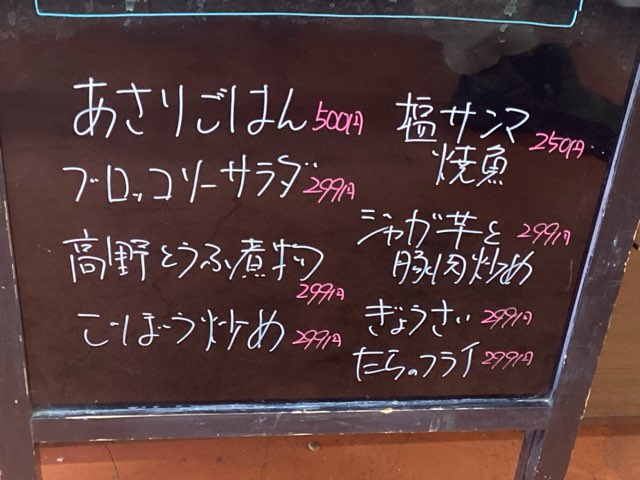 あさりごはん 500円
ブロッコリーサラダ 299円
高野とうふ煮物
299円
ごぼう炒め 299円
塩サンマ
焼魚 250円
ジャガ芋と 299円
豚肉炒め
ぎょうざい 299円
たらのフライ 299円